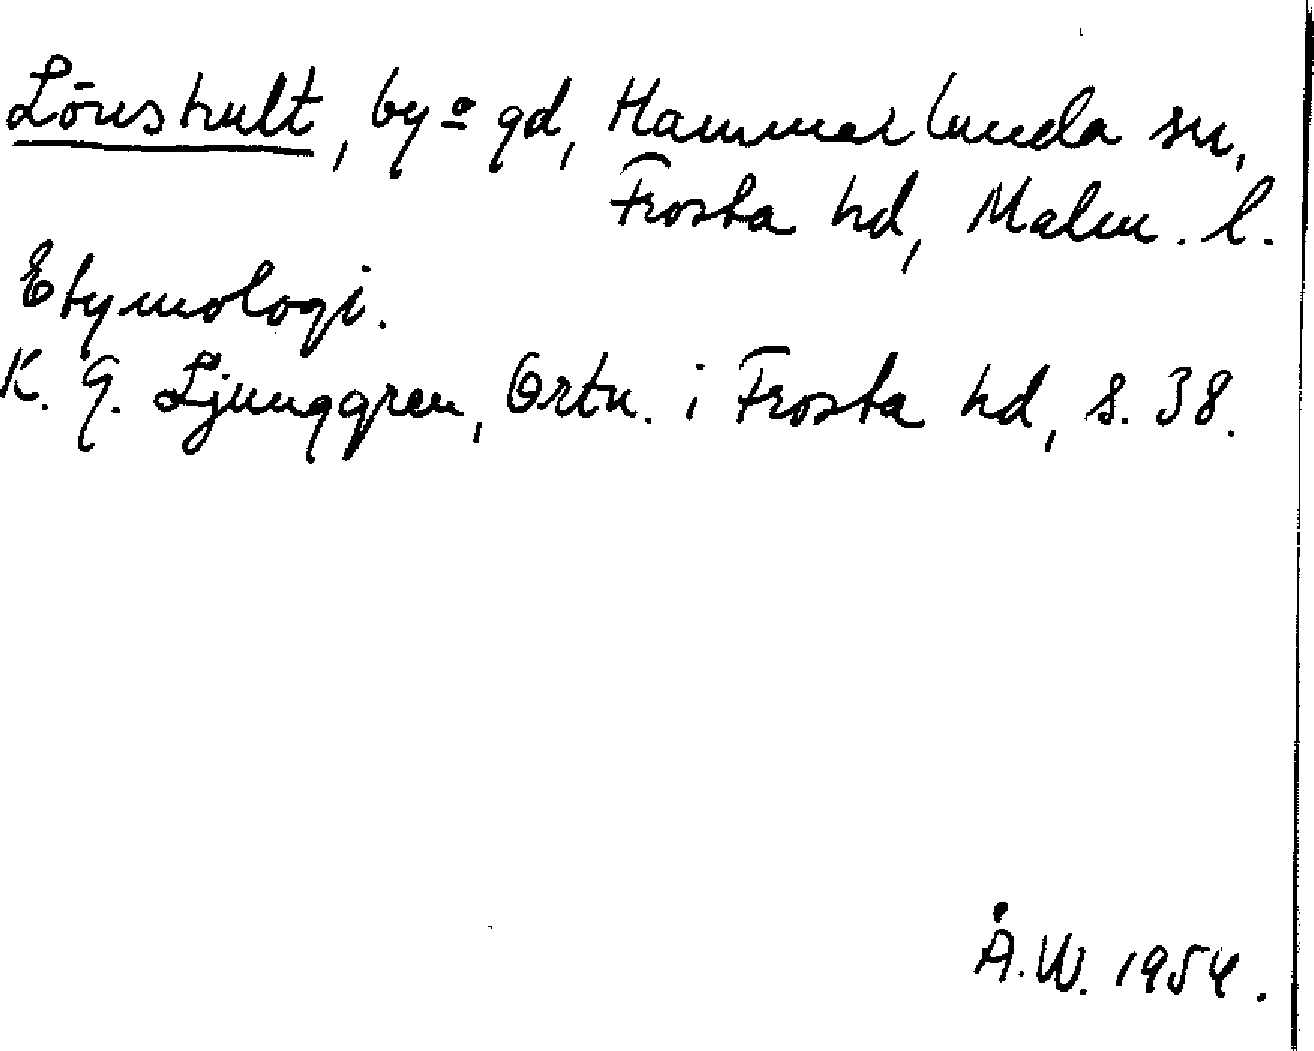 Lönshult, by o gd, Hammarlunda sn,
Frosta hd, Malm. l.
Etymologi.
K. G. Ljunggren, Ortn. i Frosta hd, s. 38.
Å.W. 1954.